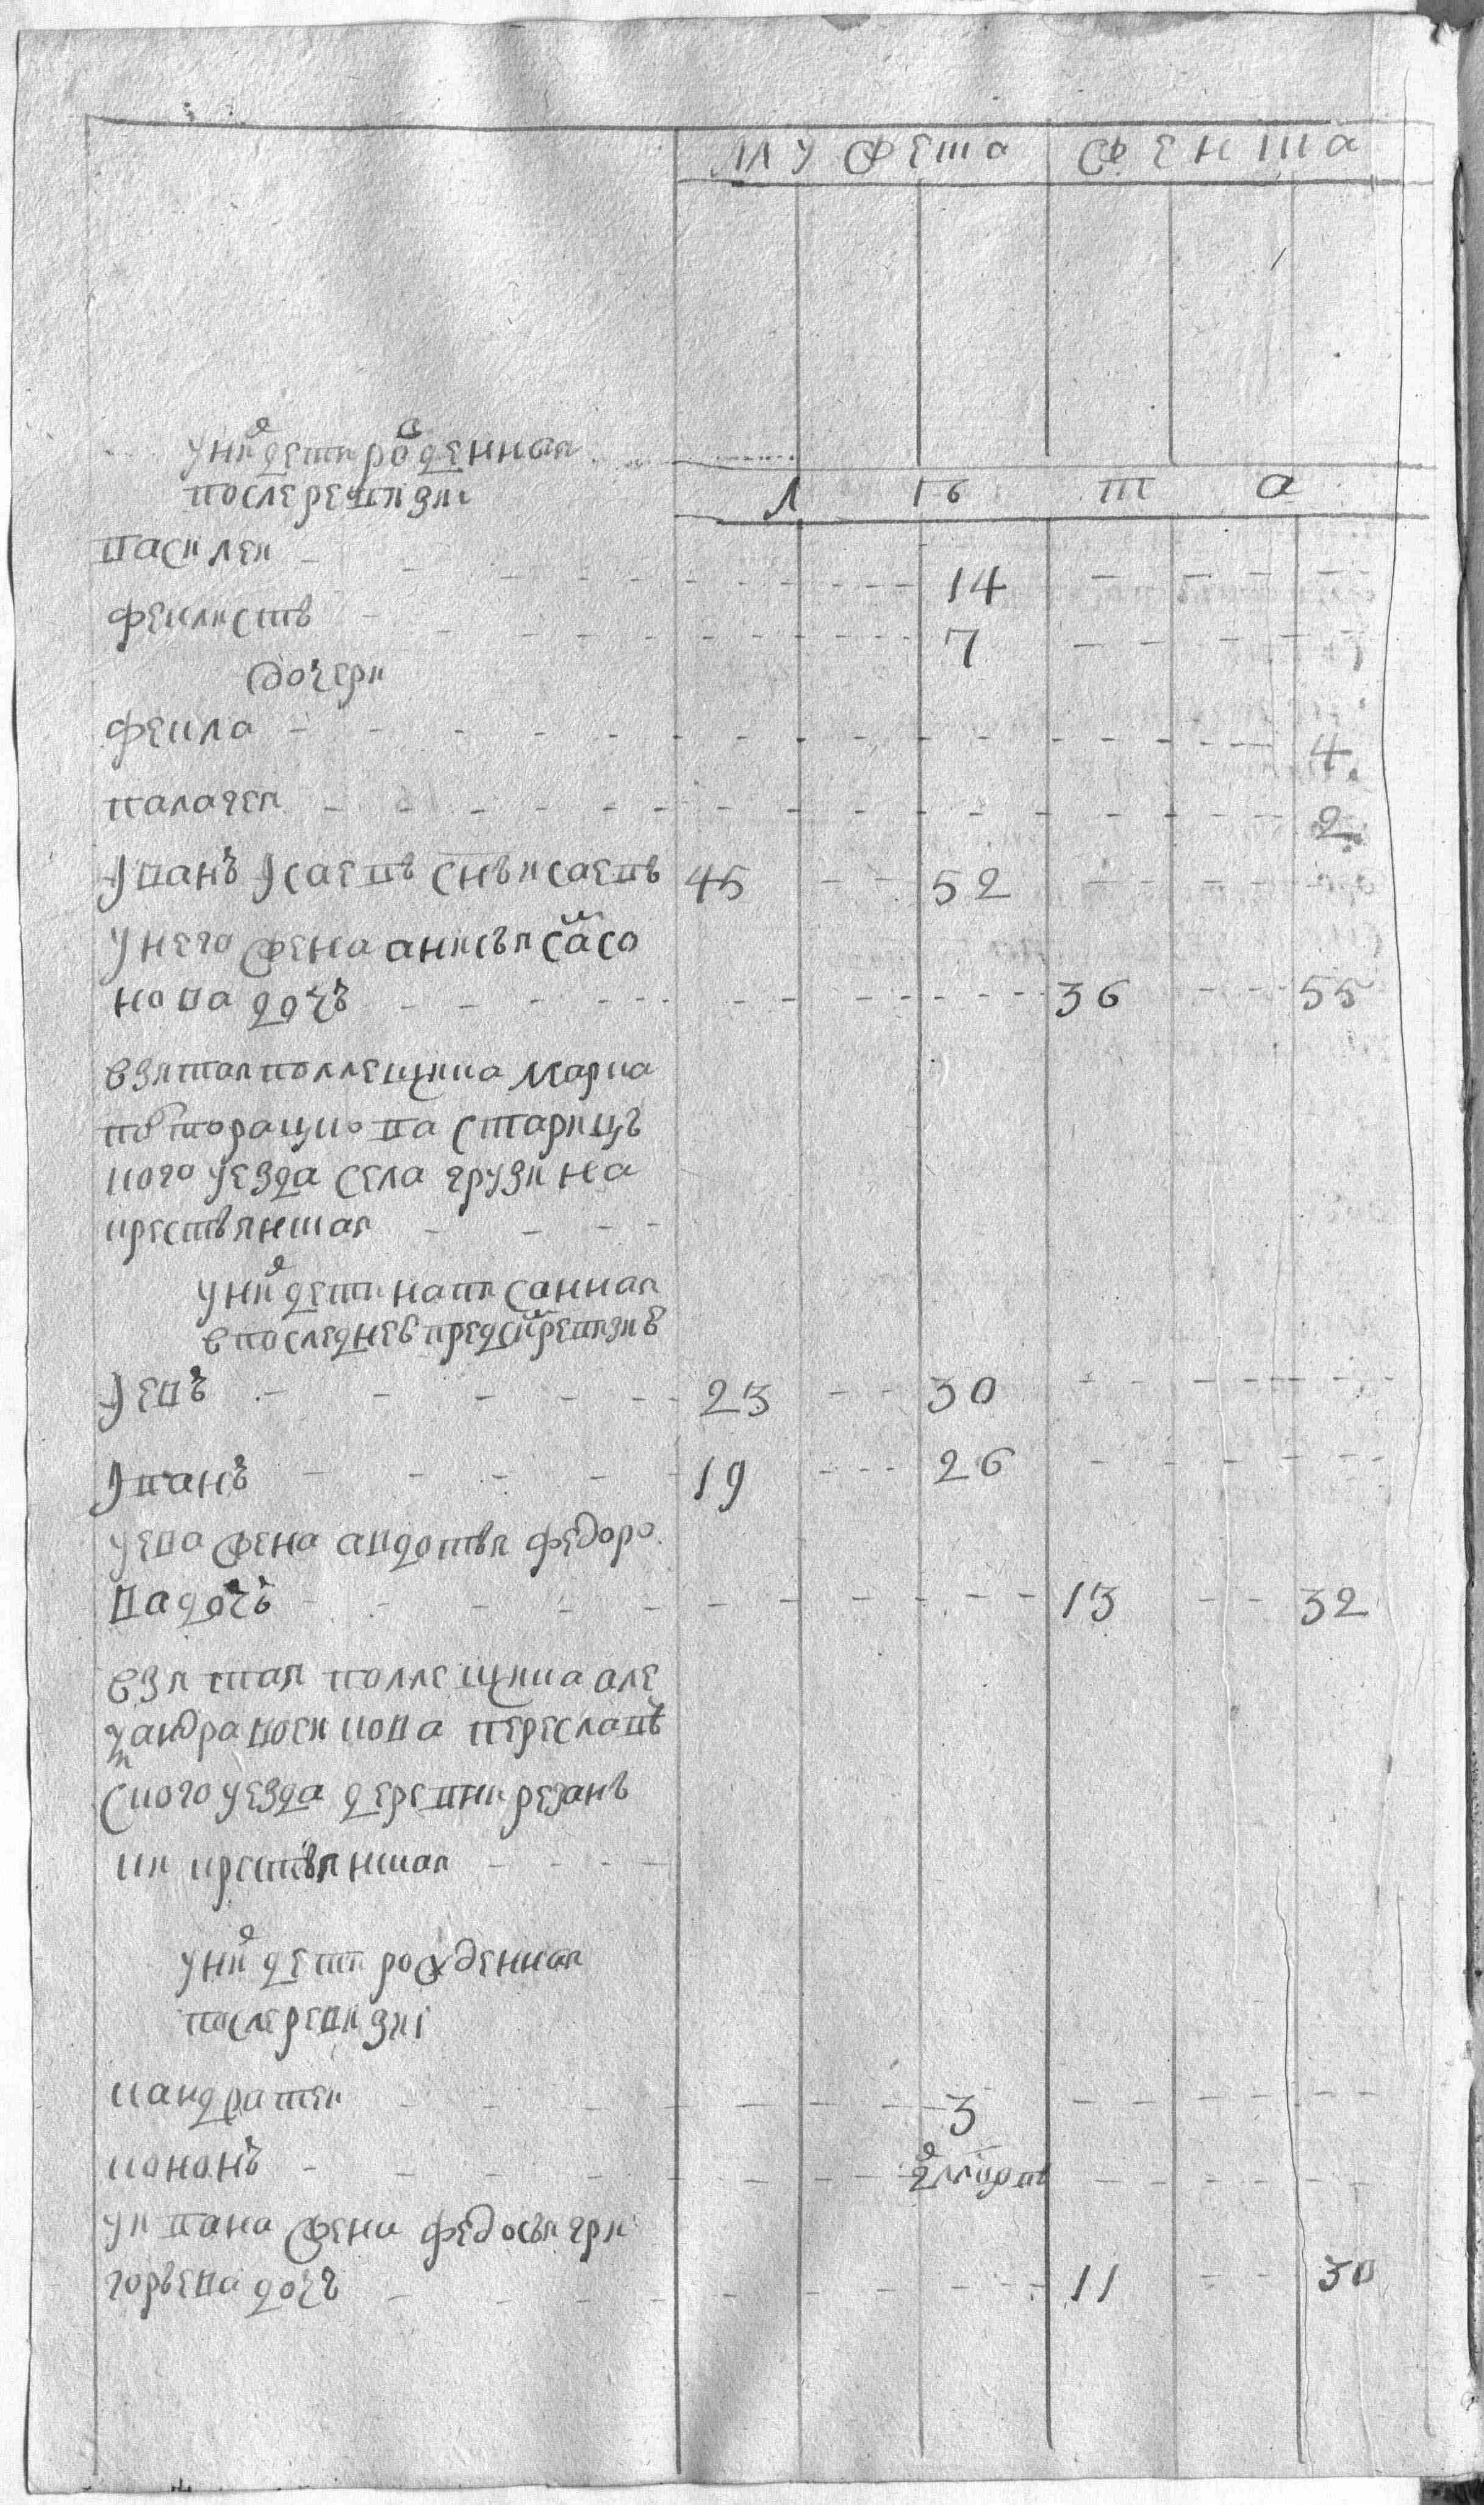 мужеска женска
у них дети рожденныя
после ревизии
лѣта
василеи - 14
феклистъ - 7
дочери
фекла - 4
палагея - 2
Иванъ Исаевъ снъ исаевъ 45 - 52
у него жена анисья само
нова дочь - 36 - 55
взятая помещика марка
повторацкова стариць
кого уезда села грузина
крестьянская
у них дети написанныя
в последнеи пред сим ревизиѣ
Иевъ - 23 - 30
Иванъ - 19 - 26
у ева жена авдотья федоро
ва дочь - 13 - 32
взятая помещика але
ксандра воеикова переславъ
скаго уезда деревни резань
ки крестьянская
у них дети рожденныя
после ревизиi
кандратеи - 3
кононъ - 2 мцовъ
у ивана жена федосья гри
горьева дочь - 11 - 30